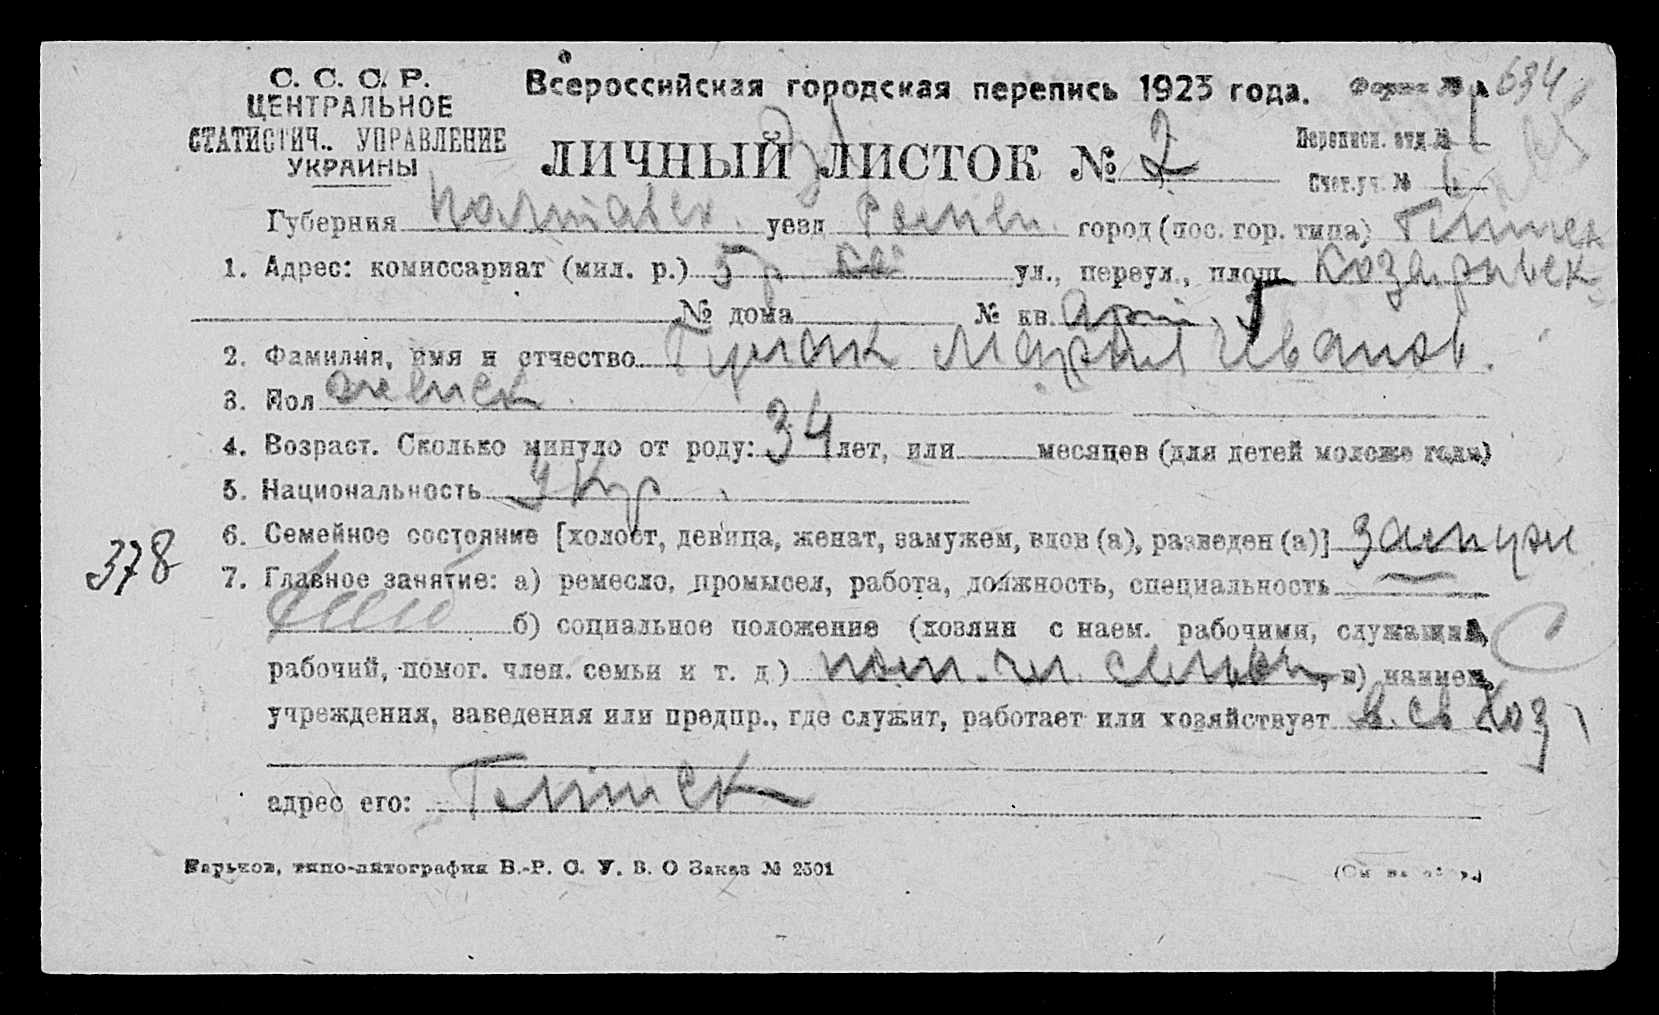 С. С. С. Р.
ЦЕНТРАЛЬНОЕ
СТАТИСТИЧ. УПРАВЛЕНИЕ
УКРАИНЫ
Всероссийская городская перепись 1923 года.
Форма № 634
ЛИЧНЫЙ ЛИСТОК № 2
Переписн. отд. №
Счет. уч. №
Губерния Полтавск. уезд Роменск. город (пос. гор. типа) Глинск
1. Адрес: комиссариат (мил. р.) 5 р. ул., переул., площ. Козаровск
№ дома № кв. 5
2. Фамилия, имя и отчество Гурман Мария Иванов.
3. Пол женск
4. Возраст. Сколько минуло от роду: 34 лет, или месяцев (для детей моложе года)
5. Национальность Укр
6. Семейное состояние [холост, девица, женат, замужем, вдов (а), разведен (а)] замуж
378
7. Главное занятие: а) ремесло, промысел, работа, должность, специальность —
б) социальное положение (хозяин с наем. рабочими, служащий,
рабочий, помог. член. семьи и т. д.) пом. чл. семьи, в) наимен.
учреждения, заведения или предпр., где служит, работает или хозяйствует в св хоз
адрес его: Глинск
Харьков, типо-литография В.-Р. С. У. В. О Заказ № 2501